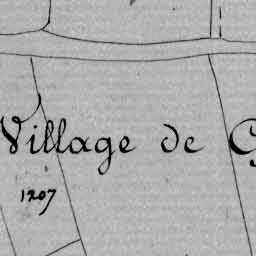 Village de
1207